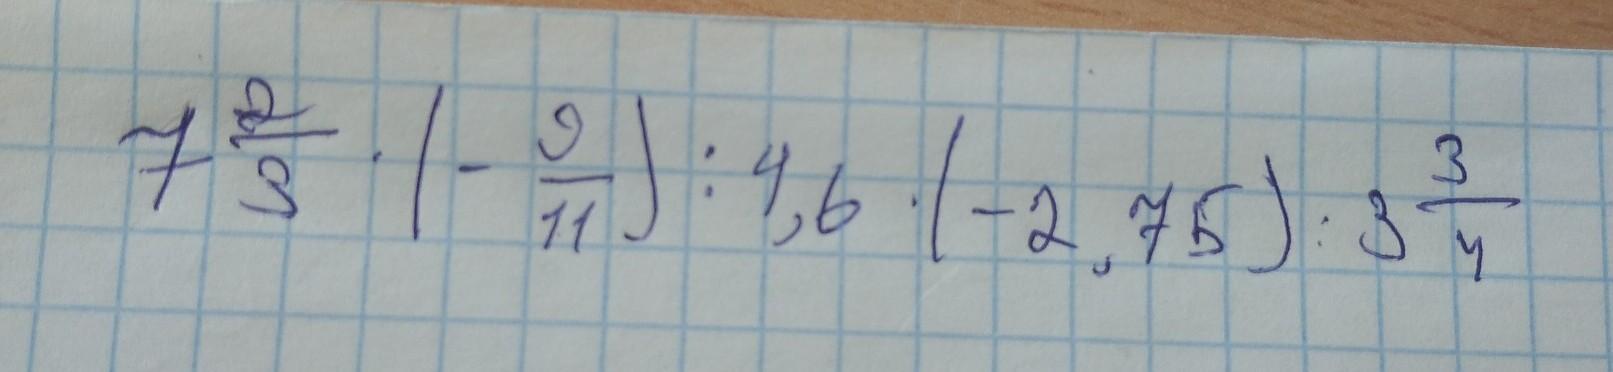 7 2/3 · (- 9/11) : 4,6 · (-2,75) : 3 3/4